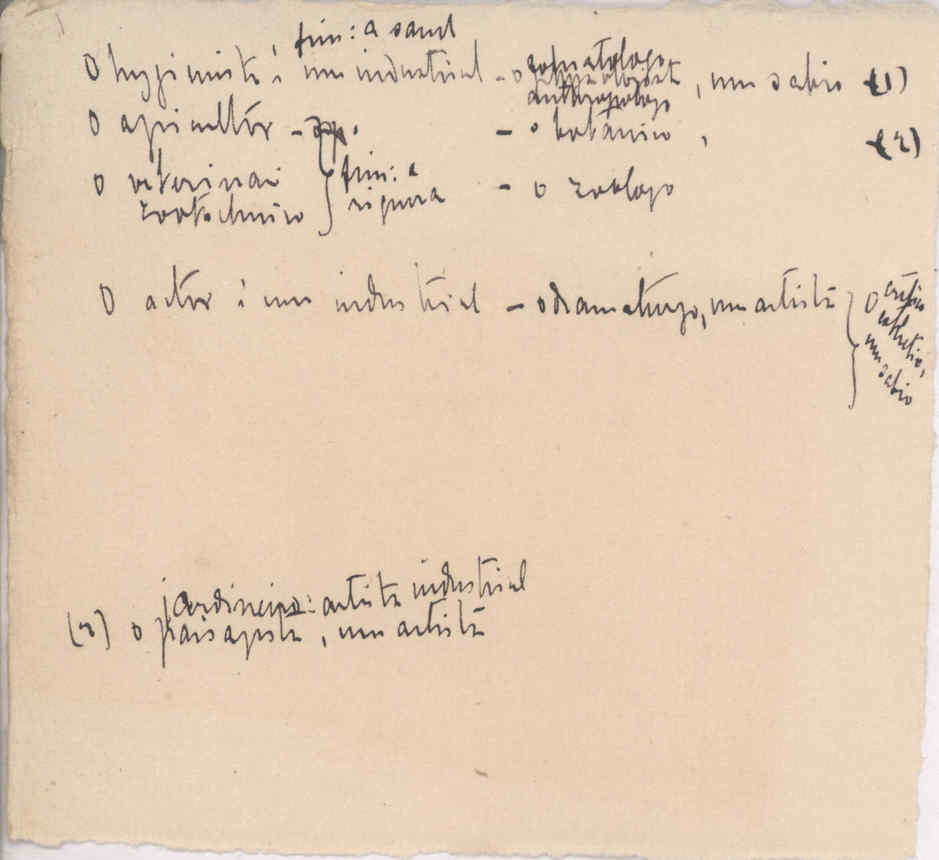 fim: a saud
O hygienista é um industrial – o somatologo
anthropologo, um sabio (1)
O agricultor – – o botanico, (2)
o veterinar
zootechnico } fim: a
riqueza – o zoologo
O actor é um industrial – o dramaturgo, um artista } O critico
esthetico,
um sabio
jardineiro: artista industrial
(2) o paisagista, um artista